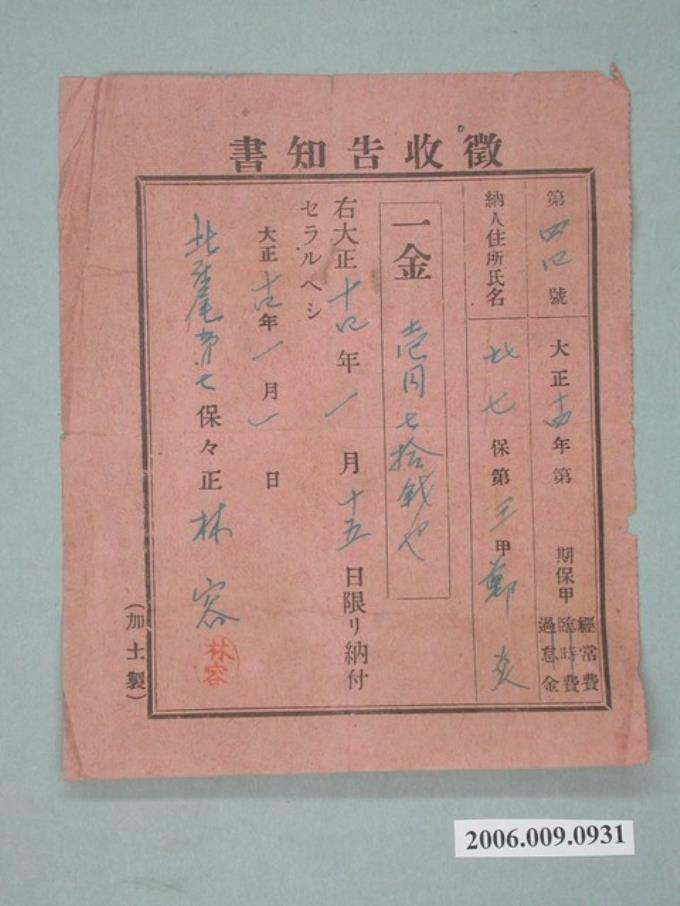 徵收告知書
第四〇號
大正十四年第 期保甲 經常費 臨時費 過怠金
納人住所氏名
北七保第三甲鄭炎
一金 壱円七拾戔也
右大正十四年一月十五日限リ納付
セラルヘシ
大正十四年一月一日
北 尾第七保々正 林容
林容
(加土製)
2006.009.0931